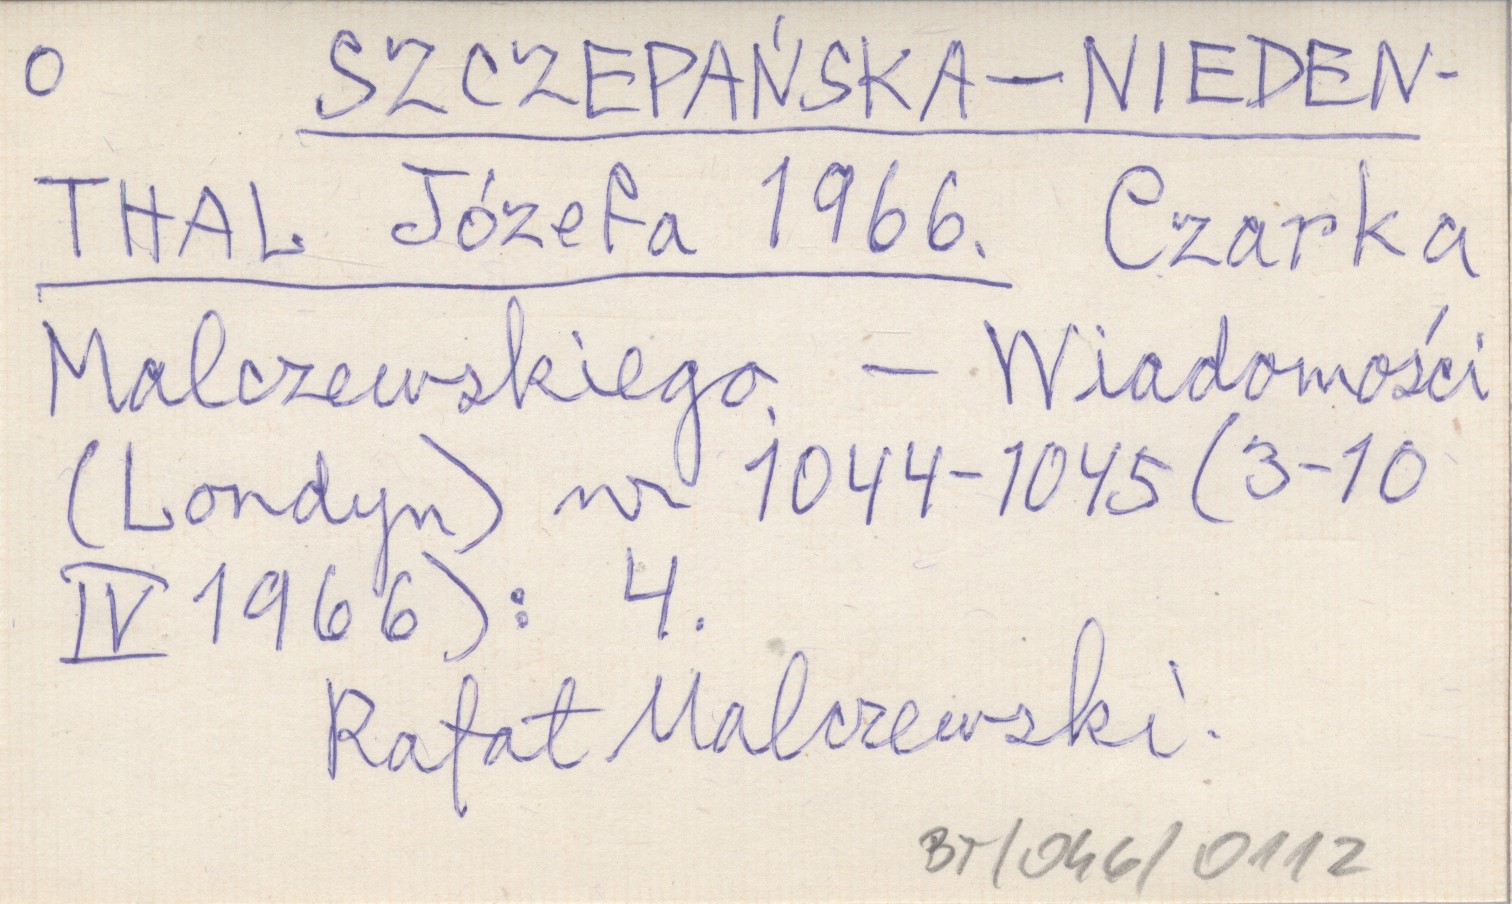 O SZCZEPAŃSKA—NIEDEN-
THAL Józefa 1966. Czarka
Malczewskiego. — Wiadomości
(Londyn) nr 1044-1045 (3-10
IV 1966): 4.
Rafał Malczewski.
BT/046/0112